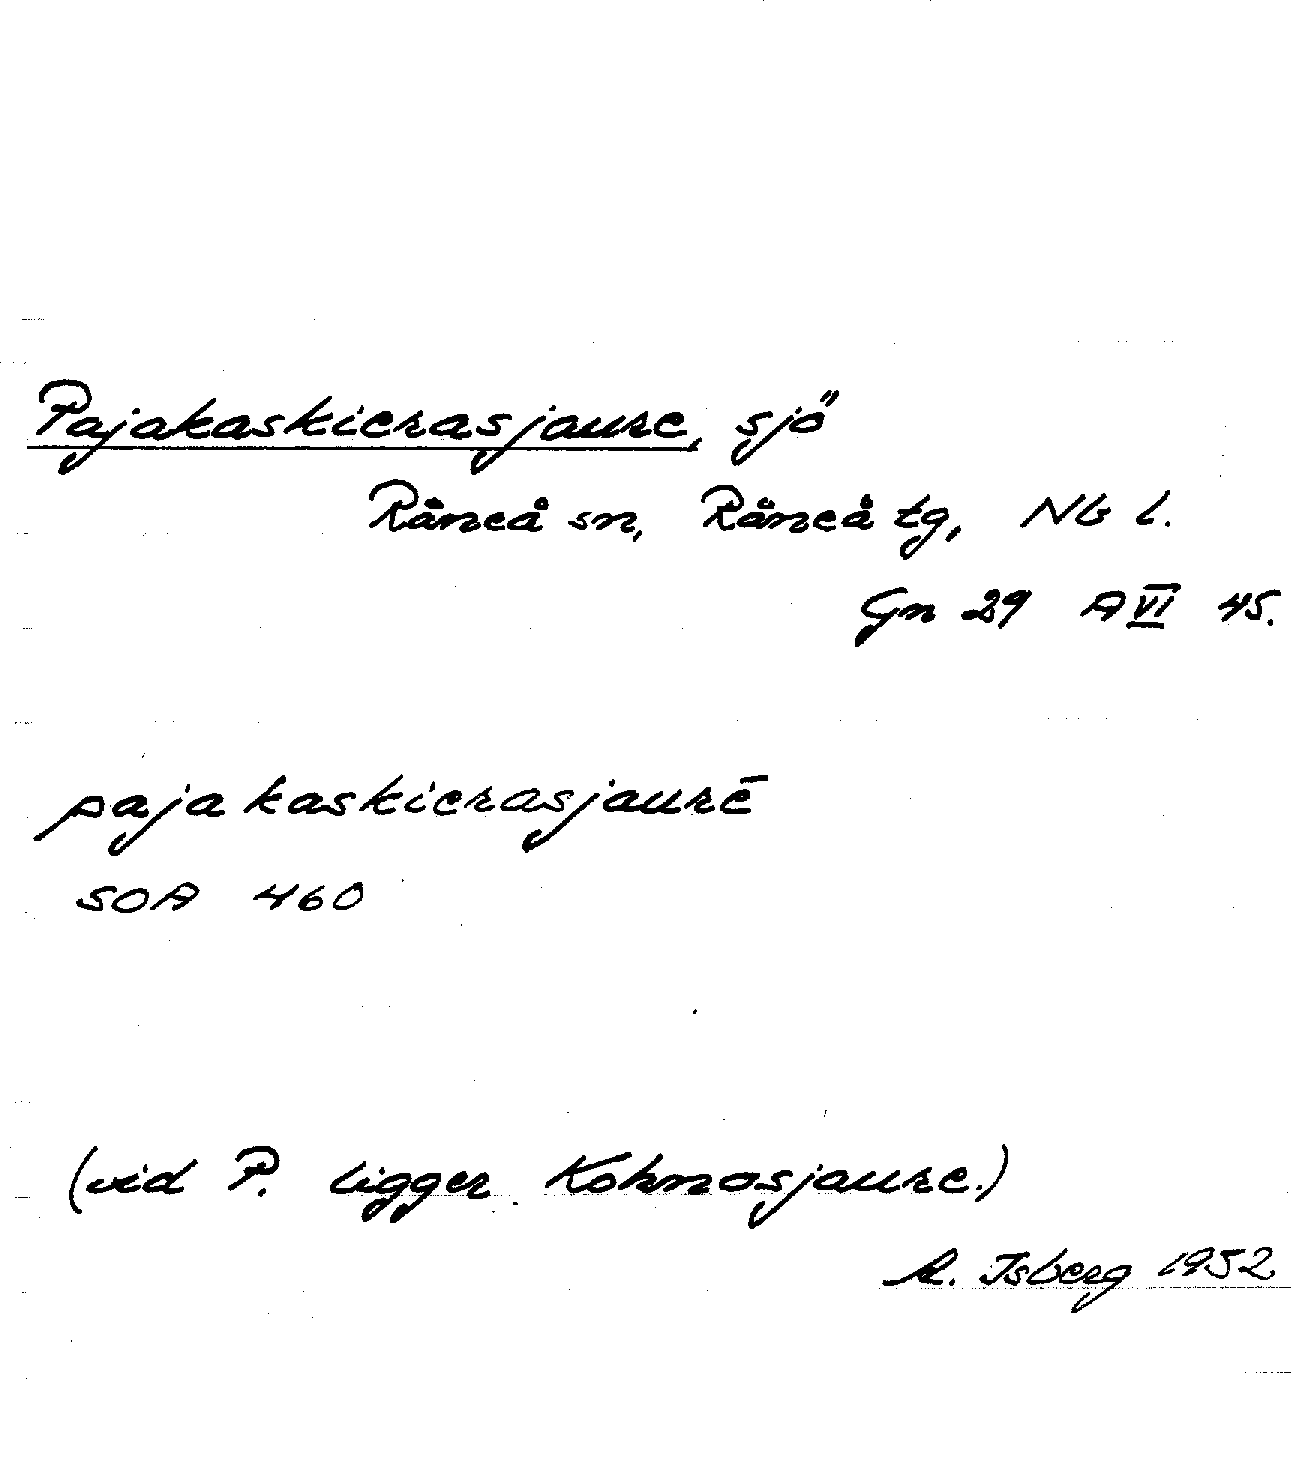 Pajakaskierasjaure, sjö
Råneå sn, Råneå tg, Nb l.
Gn 29 A VI 45.
paja kaskierasjaurē
SOA 460
(vid P. ligger Kohmosjaure.)
A. Isberg 1952